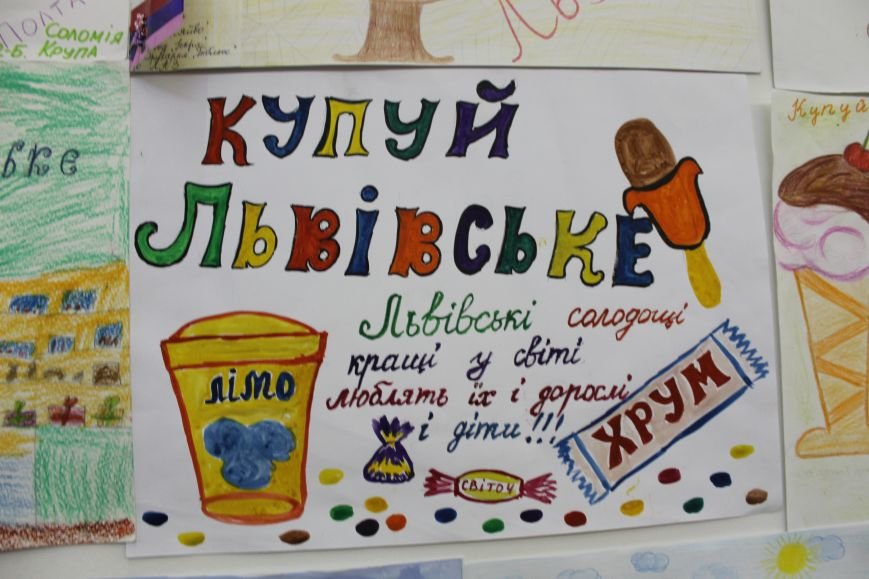 Соломія
Крупа
ьке
Купуй
КУПУЙ
ЛЬВІВСЬКЕ
Львівські солодощі
кращі у світі
люблять їх і дорослі
і діти!!!
лімо
ХРУМ
СВІТОЧ